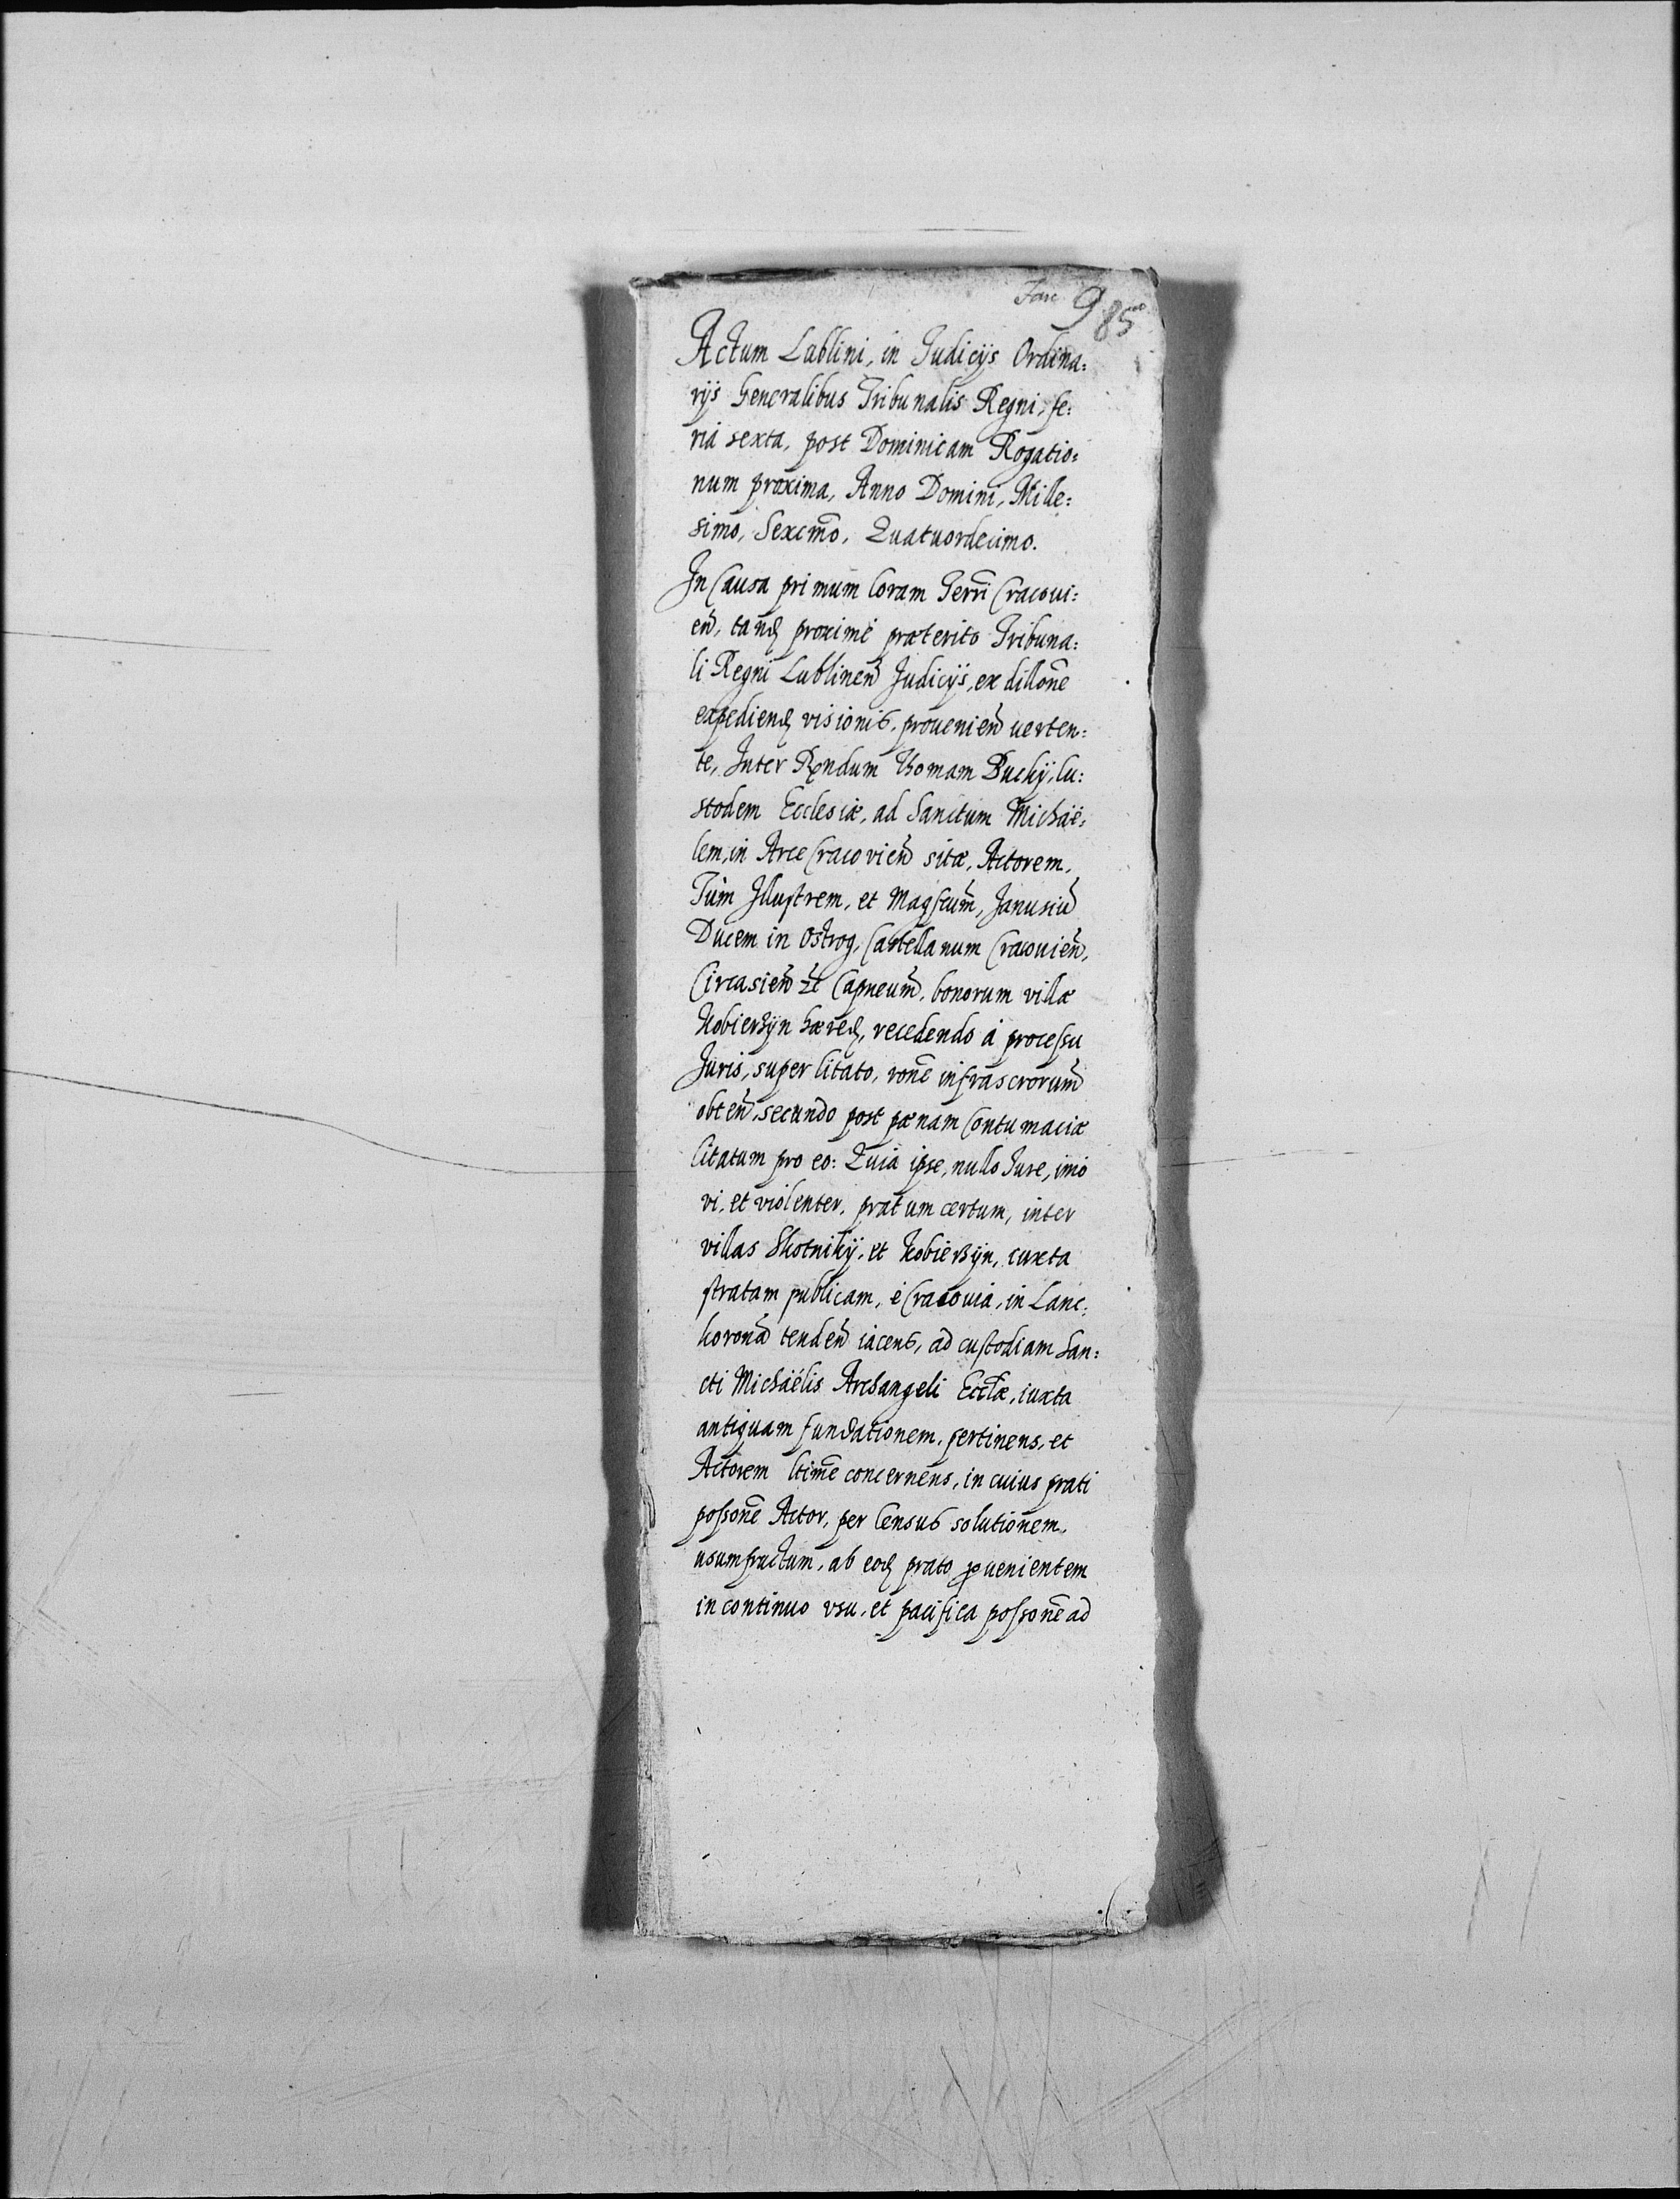 985
Actum Lublini, in Judicijs Ordina:
rijs Generalibus Tribunalis Regni, fe:
ria sexta, post Dominicam Rogatio:
num proxima, Anno Domini, Mille:
simo, Sexcmō, Quatuordecimo.
In Causa primum Coram Terri Cracoui:
en̄, tand proximé præterito Tribuna:
li Regni Lublinen̄ Judicijs, ex dillonē
expediend visionis, prouenien̄ uerten:
te, Inter Rndum Thomam Buckÿ, Cu:
stodem Ecclesiæ, ad Sanctum Michaë:
lem, in Arce Cracovien̄ sitæ, Actorem,
Tùm Illustrem, et Magfcum̄, Janusiū
Ducem in Ostrog, Castellanum Cracouien̄,
Circasien̄ Et Capneum̄, bonorum villæ
Kobierzÿn hæred, recedendo á processu
Juris, super citato, ronē infrascrorum̄
obten̄, secundo post pænam Contumaciæ
Citatum pro eo: Quia ipse, nullo Jure, imò
vi, et violenter, pratum certum, inter
villas Skotnikÿ, et Kobierzÿn, iuxta
stratam publicam, é Cracouia, in Lanc:
koronā tenden̄ iacens, ad custodiam San:
cti Michaëlis Archangeli Ecclæ, iuxta
antiquam fundationem, pertinens, et
Actorem ltimē concernens, in cuius prati
possonē Actor, per Census solutionem,
usumfructum, ab eod prato prouenientem
in continuo vsu, et pacifica possonē ad